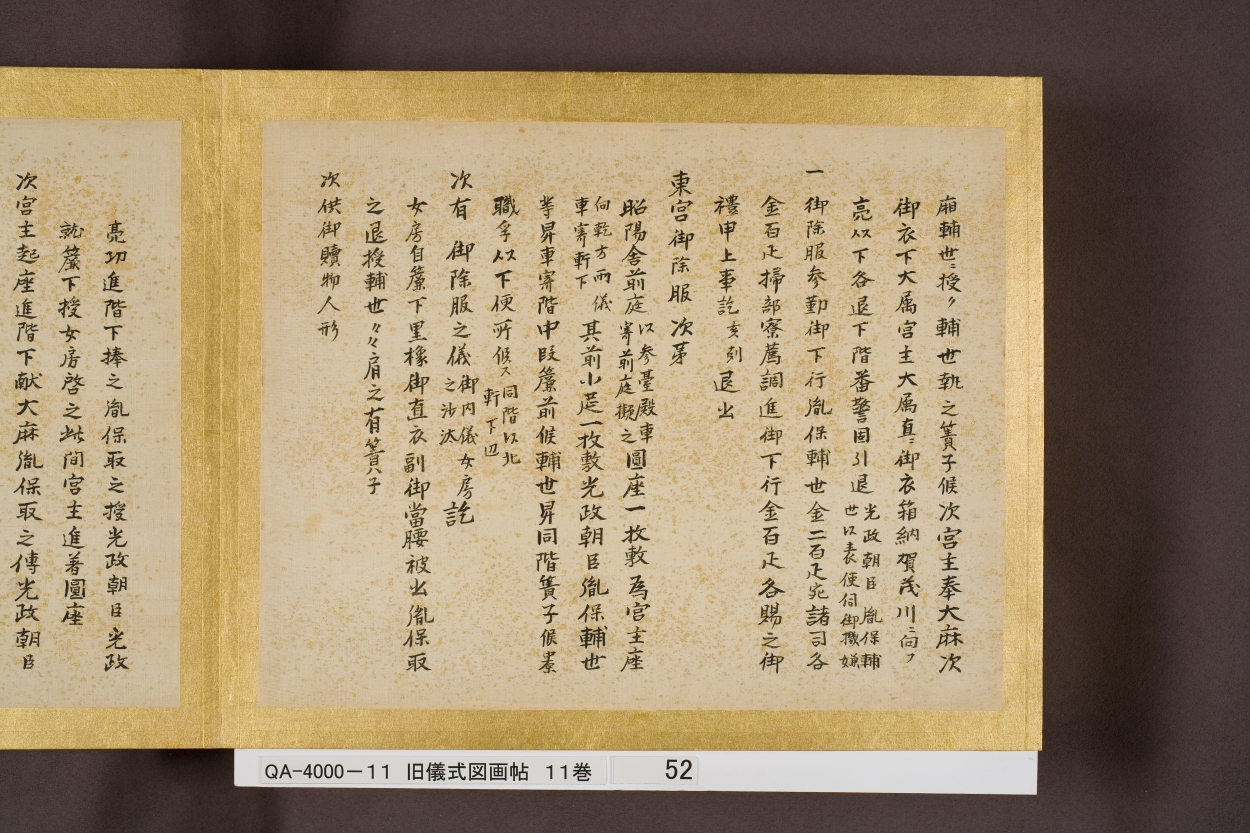 廂輔世ニ授ク輔世執之簀子候次宮主奉大麻次
御衣下大属宮主大属直ニ御衣箱納賀茂川ニ向フ
亮以下各退下階番警固引退光政朝臣胤保輔
世以表使伺御機嫌
一御除服参勤御下行胤保輔世金二百疋宛諸司各
金百疋掃部寮薦調進御下行金百疋各賜之御
禮申上事訖亥刻退出
東宮御除服次第
昭陽舎前庭以参臺殿車
寄前庭擬之圓座一枚敷為宮主座
向乾方而儀
車寄軒下其前小莚一枚敷光政朝臣胤保輔世
等昇車寄階中段簾前候輔世昇同階簀子候
職掌以下便所候ス同階以北
軒下辺
次有御除服之儀御内儀女房
之沙汰訖
女房自簾下里橡御直衣副御當腰被出胤保取
之退授輔世々々肩之有簀子
次供御贖物人形
亮功進階下捧之胤保取之授光政朝臣光政
就簾下授女房啓之此間宮主進著圓座
次宮主起座進階下献大麻胤保取之傳光政朝臣
QA-4000-11 旧儀式図画帖 11巻 52